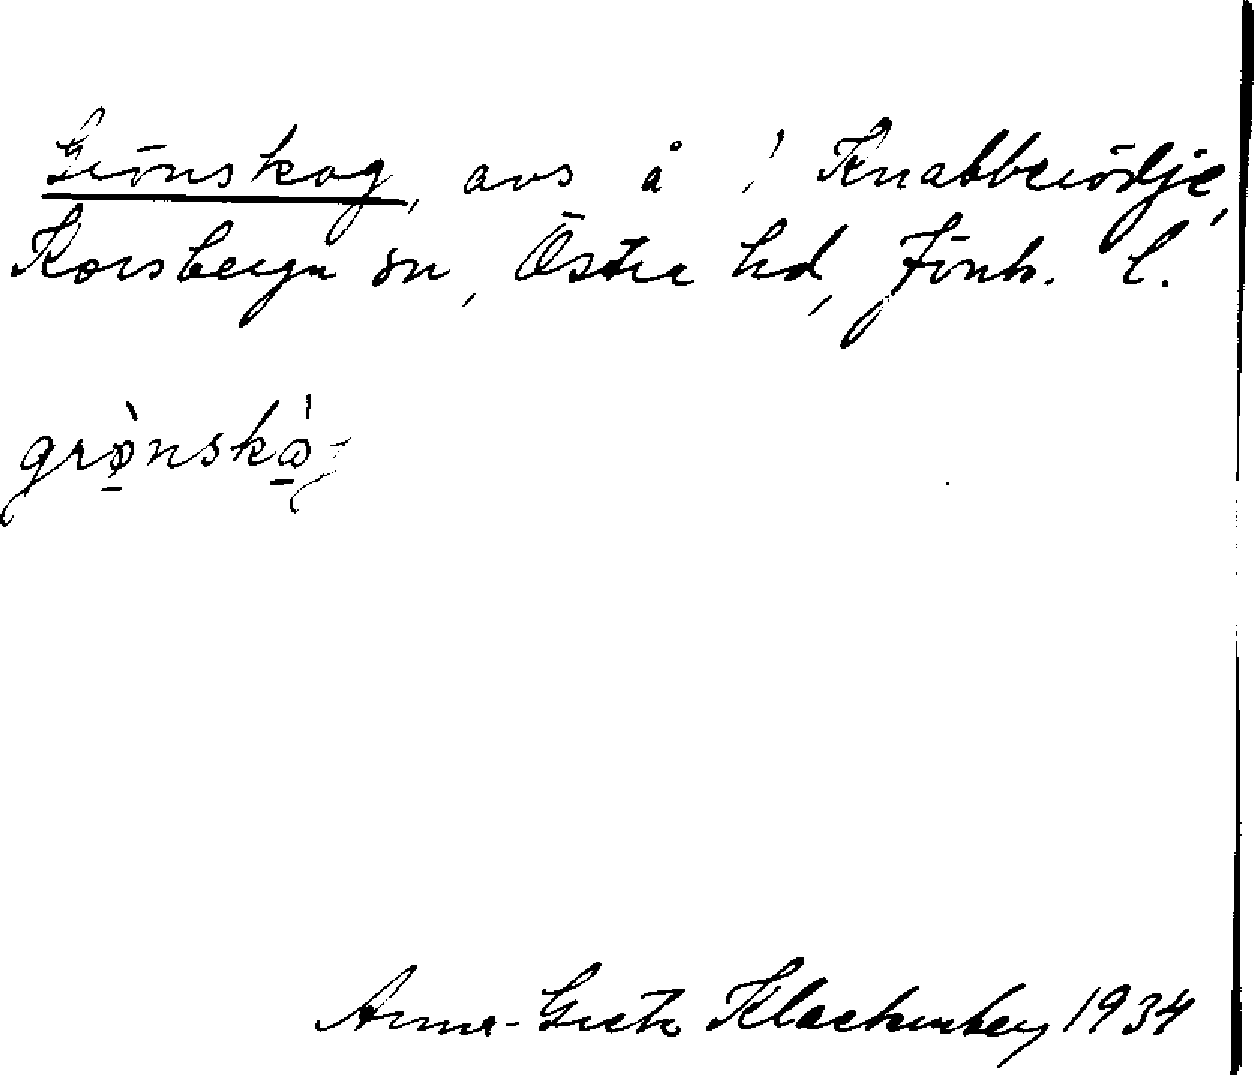 Grönskog, avs å i Knabberödje,
Korsberga sn, Östra hd, Jönk. l.
grønskɷg
Anna-Greta Klackenberg 1934